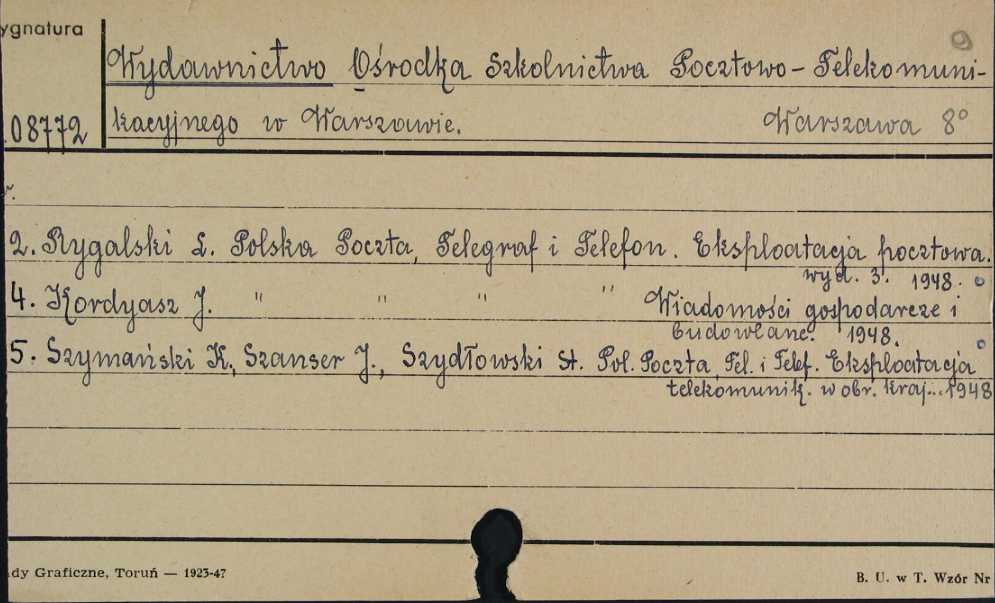 ygnatura
9
Wydawnictwo Ośrodka Szkolnictwa Pocztowo-Telekomuni-
08772 kacyjnego w Warszawie. Warszawa 8°
r.
2. Rygalski L. Polska Poczta, Telegraf i Telefon. Eksploatacja pocztowa.
wyd. 3. 1948.
4. Kordyasz J. " " " " Wiadomości gospodarcze i
budowlane. 1948.
5. Szymański K., Szanser J., Szydłowski St. Pol. Poczta, Tel. i Telef. Eksploatacja
telekomunik. w obr. kraj... 1948
dy Graficzne, Toruń — 1923-47
B. U. w T. Wzór Nr